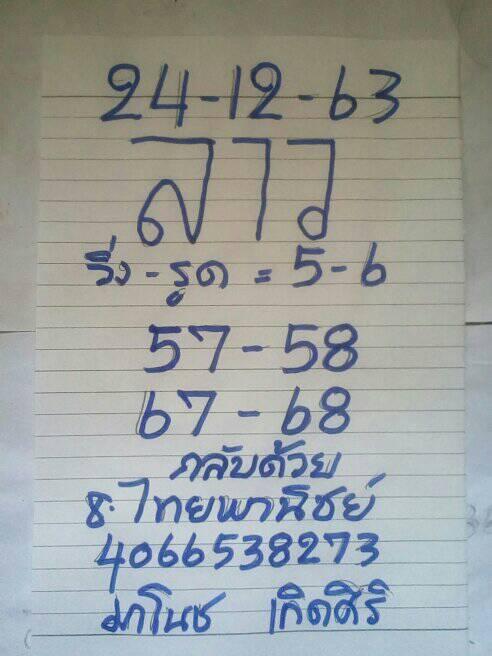 24-12-63
ลาว
วิ่ง - รูด = 5-6
57-58
67-68
กลับด้วย
ธ.ไทยพานิชย์
4066538273
มาโนช เกิดศิริ